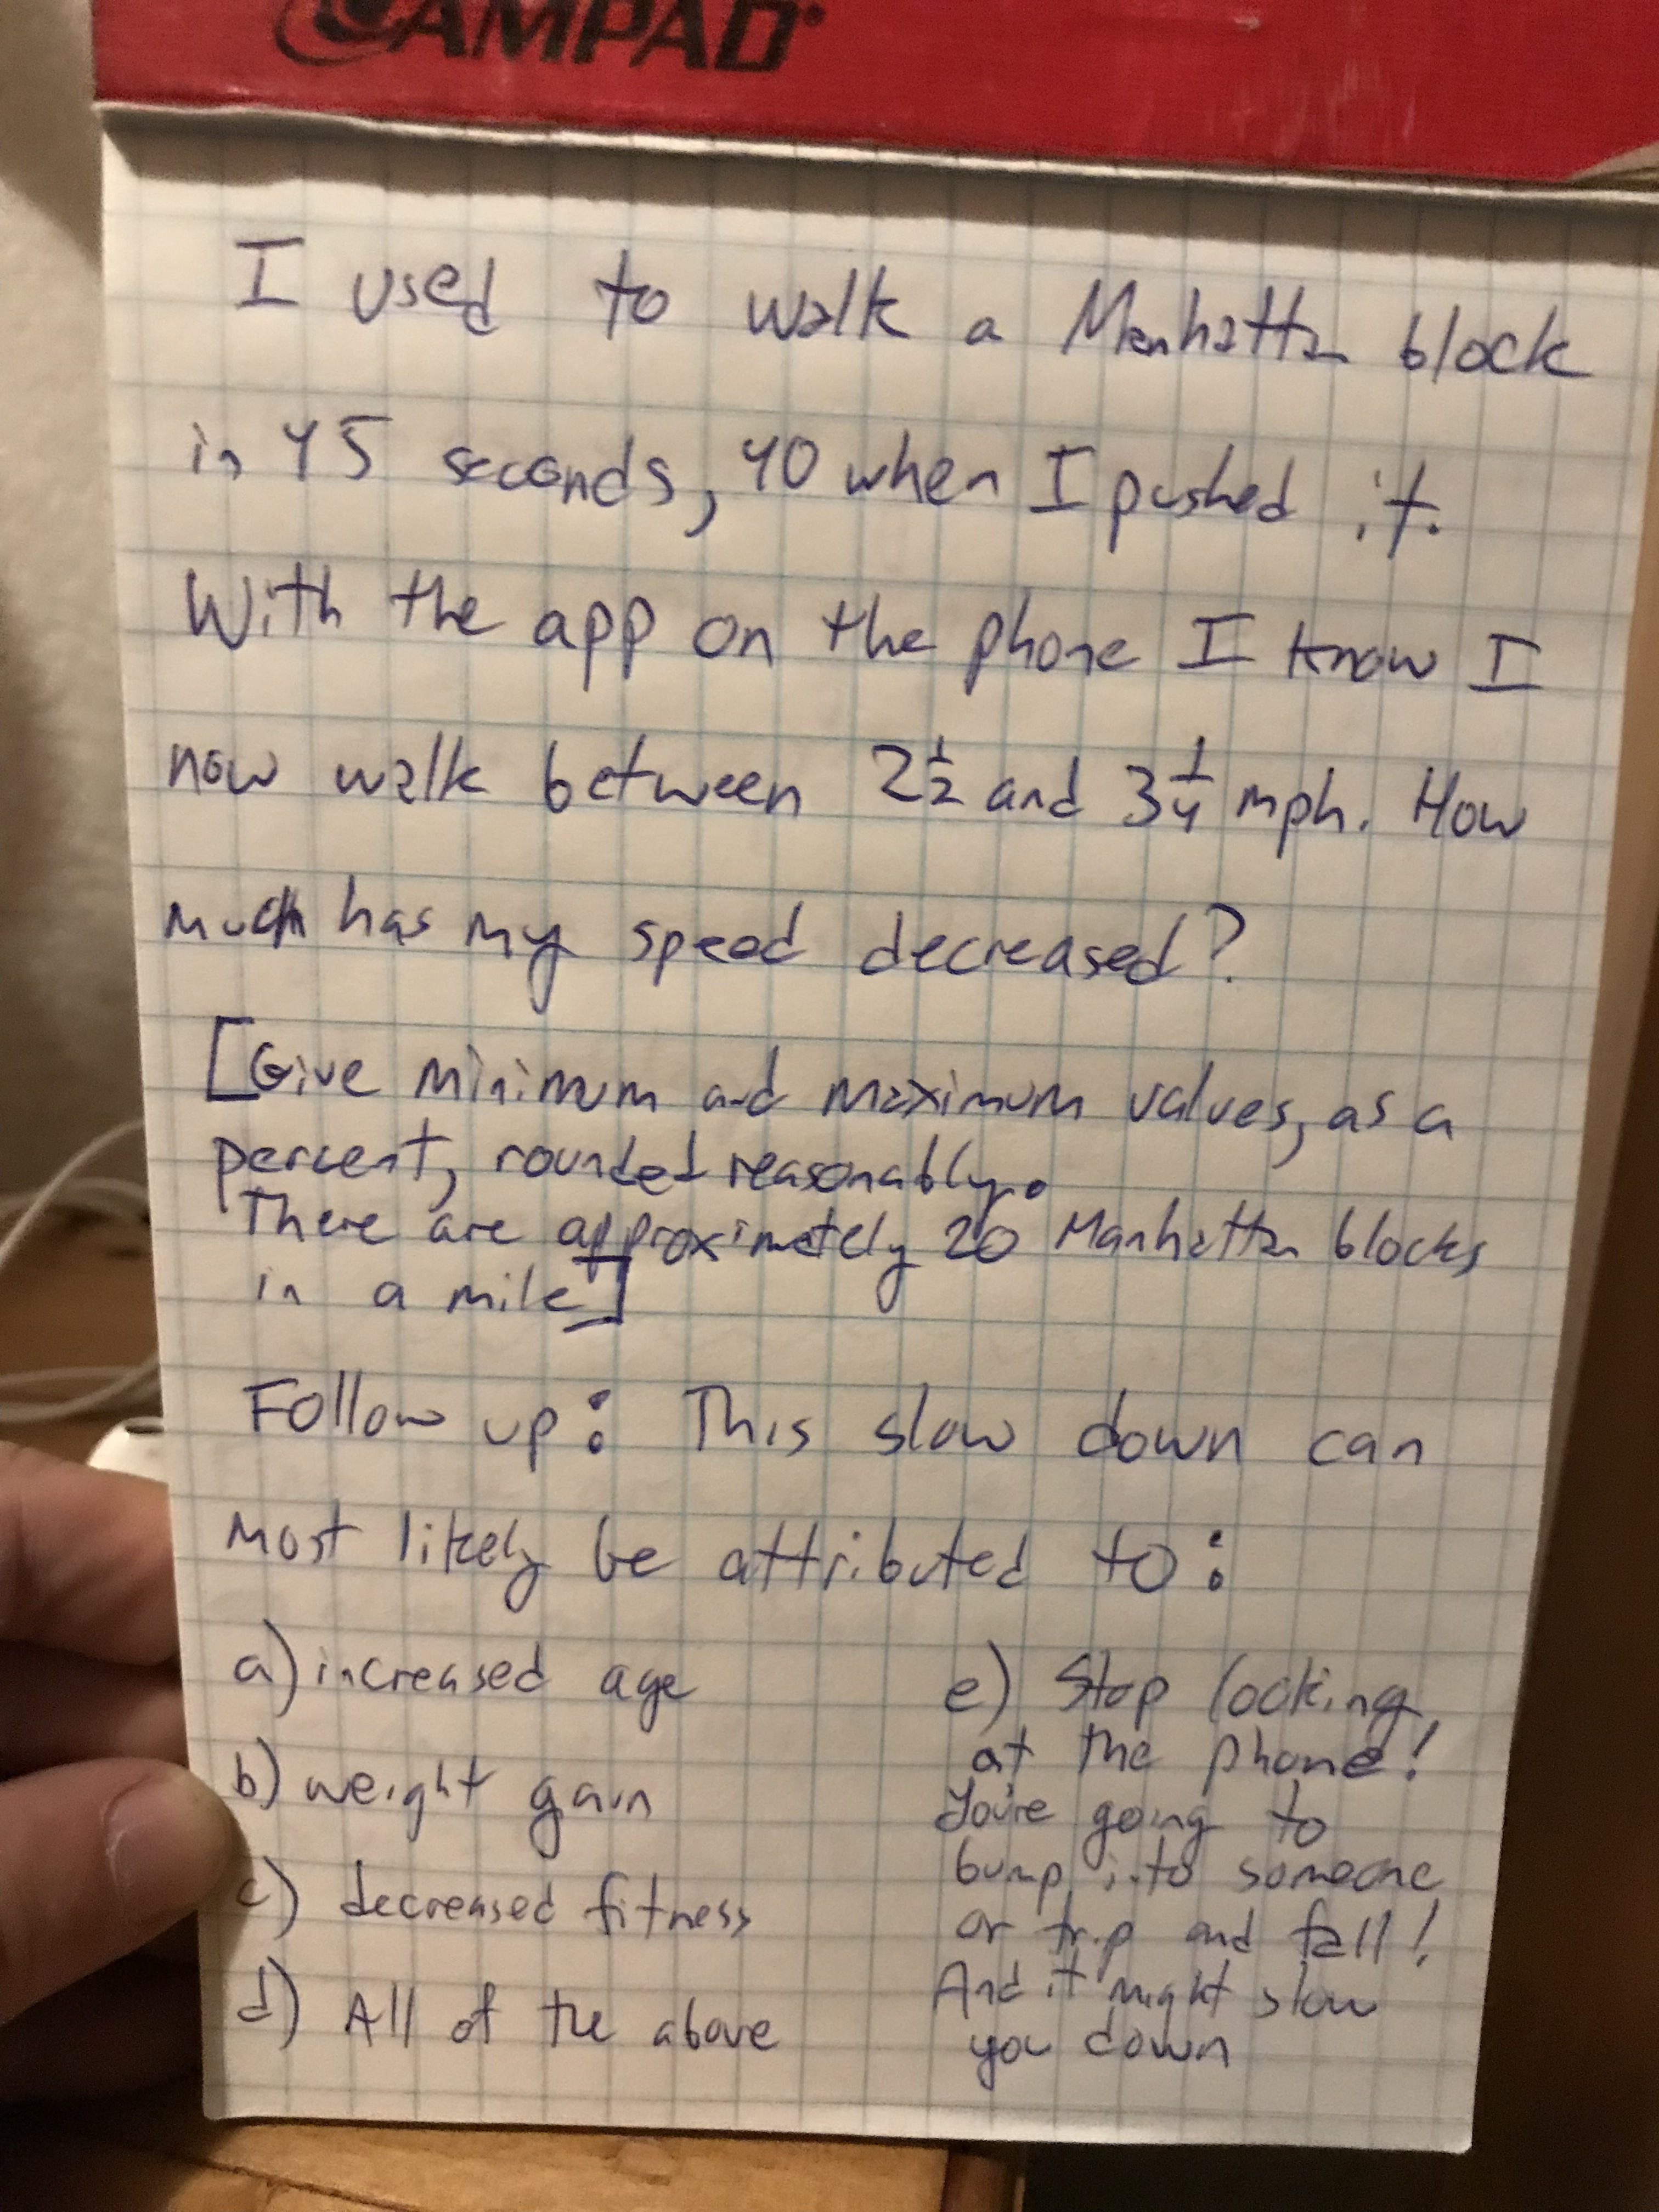 CAMPAD
I used to walk a Manhattan block
in 45 seconds, 40 when I pushed it.
With the app on the phone I know I
now walk between 2 1/2 and 3 1/4 mph. How
much has my speed decreased?
[Give minimum and maximum values, as a
percent, rounded reasonably.
There are approximately 20 Manhattan blocks
in a mile]
Follow up: This slow down can
most likely be attributed to:
a) increased age
b) weight gain
c) decreased fitness
d) All of the above
e) Stop looking
at the phone!
You're going to
bump into someone
or trip and fall!
And it might slow
you down